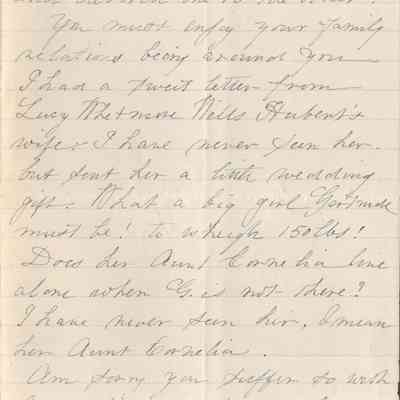 You must enjoy your family
relations being around you
I had a sweet letter from
Lucy Whetmore Wells Hubert's
wife. I have never seen her.
but sent her a little wedding
gift. What a big girl Gertrude
must be! to wheigh 150 lbs!
Does her Aunt Cornelia live
alone when G. is not there?
I have never seen her, I mean
her Aunt Cornelia.
Am sorry you suffer so with